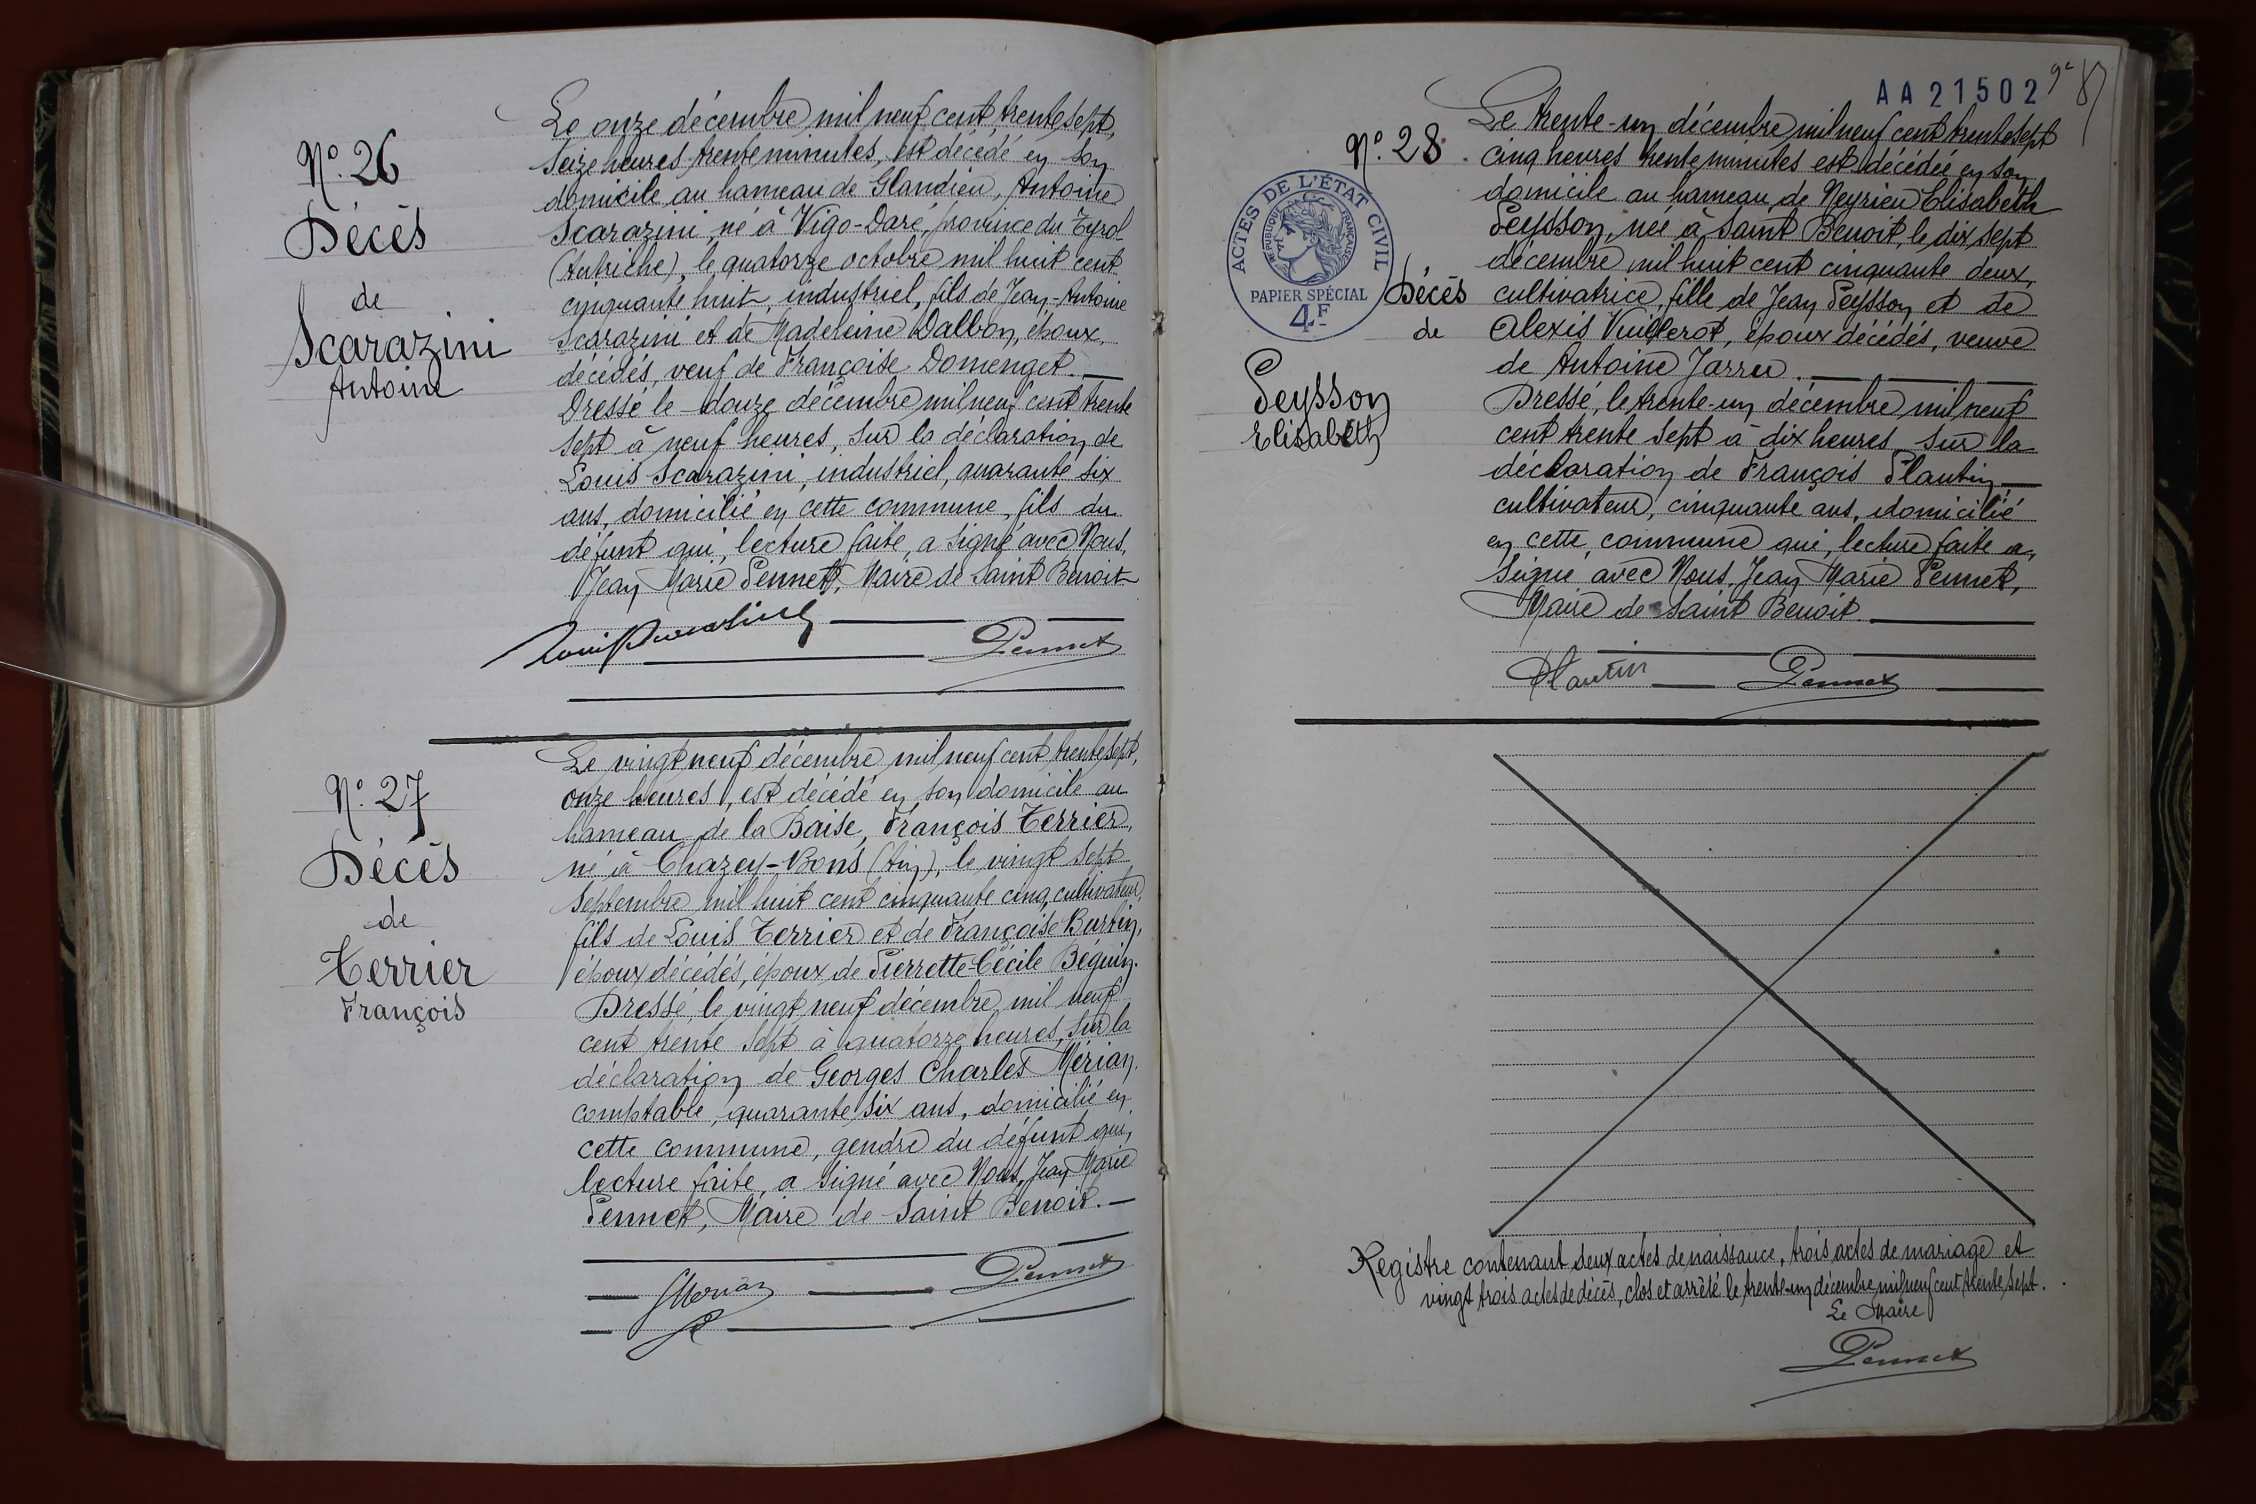 N° 26
Décès
de
Scarazini
Antoine
Le onze décembre mil neuf cent trente sept,
seize heures trente minutes, est décédé en son
domicile au hameau de Glandieu, Antoine
Scarazini, né à Vigo-Daré, province du Tyrol
(Autriche), le quatorze octobre mil huit cent
cinquante huit, industriel, fils de Jean-Antoine
Scarazini et de Madeleine Dalbon, époux
décédés, veuf de Françoise Domenget.
Dressé le douze décembre mil neuf cent trente
sept à neuf heures, sur la déclaration de
Louis Scarazini, industriel, quarante six
ans, domicilié en cette commune, fils du
défunt qui, lecture faite, a signé avec Nous,
Jean Marie Pennet, Maire de Saint Benoit
Pennet
N° 27
Décès
de
Terrier
François
Le vingt neuf décembre mil neuf cent trente sept,
onze heures, est décédé en son domicile au
hameau de la Baise, François Terrier,
né à Chazey-Bons (Ain), le vingt sept
septembre mil huit cent cinquante cinq, cultivateur,
fils de Louis Terrier et de Françoise Burtin,
époux décédés, époux de Pierrette-Cécile Béguin.
Dressé, le vingt neuf décembre mil neuf
cent trente sept à quatorze heures, sur la
déclaration de Georges Charles Mérian,
comptable, quarante six ans, domicilié en
cette commune, gendre du défunt qui,
lecture faite, a signé avec Nous, Jean Marie
Pennet, Maire de Saint Benoit.
GMerian
Pennet
AA21502
9e
87
N° 28.
ACTES DE L'ÉTAT CIVIL
RÉPUBLIQUE FRANÇAISE
PAPIER SPÉCIAL
4F
Décès
de
Peysson
Elisabeth
Le trente-un décembre mil neuf cent trente sept
cinq heures trente minutes est décédée en son
domicile au hameau de Neyrieu Elisabeth
Peysson, née à Saint Benoit, le dix sept
décembre mil huit cent cinquante deux,
cultivatrice, fille de Jean Peysson et de
Alexis Vuillerot, époux décédés, veuve
de Antoine Jarru.
Dressé, le trente-un décembre mil neuf
cent trente sept à dix heures, sur la
déclaration de François Plantin
cultivateur, cinquante ans, domicilié
en cette commune qui, lecture faite a
signé avec Nous, Jean Marie Pennet,
Maire de Saint Benoit.
Plantin Pennet
Registre contenant deux actes de naissance, trois actes de mariage et
vingt trois actes de décès, clos et arrêté le trente-un décembre mil neuf cent trente sept.
Le Maire
Pennet